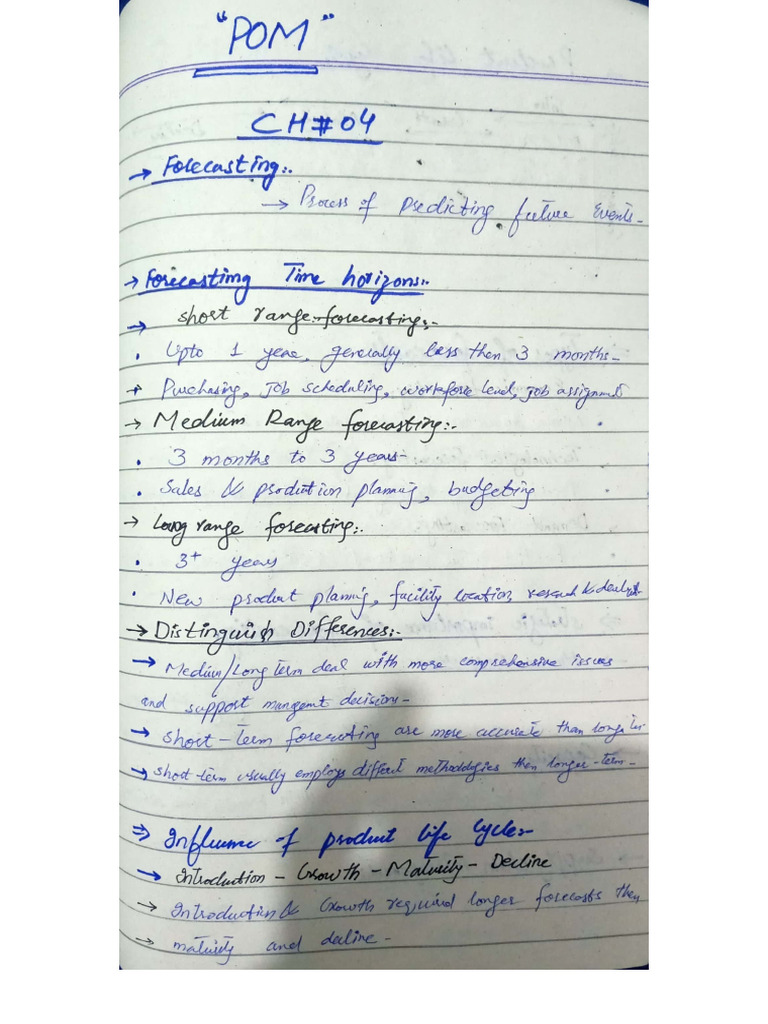 "POM"
CH#04
→ Forecasting:.
→ Process of predicting future Events-
→ Forecasting Time horizons:.
→ short range-forecasting:-
• Upto 1 year, generally less then 3 months-
• Purchasing, Job scheduling, workforse level, job assignment
→ Medium Range forecasting:-
• 3 months to 3 years-
• Sales & prodution planning, budgeting
→ Long range forecasting:.
• 3+ years
• New product planing, facility location, research &
→ Distinguish Differences:-
→ Medium/Long term deal with more comprehensive issues
and support mangemt decision-
→ short-term forecasting are more accurate than longer
→ short-term usually employs different methodologies then longer-term-
⇒ Influence of product life Cycle:-
→ Introduction - Growth - Maturity - Decline
→ Introduction & Growth required longer forecasts then
→ maturity and decline-